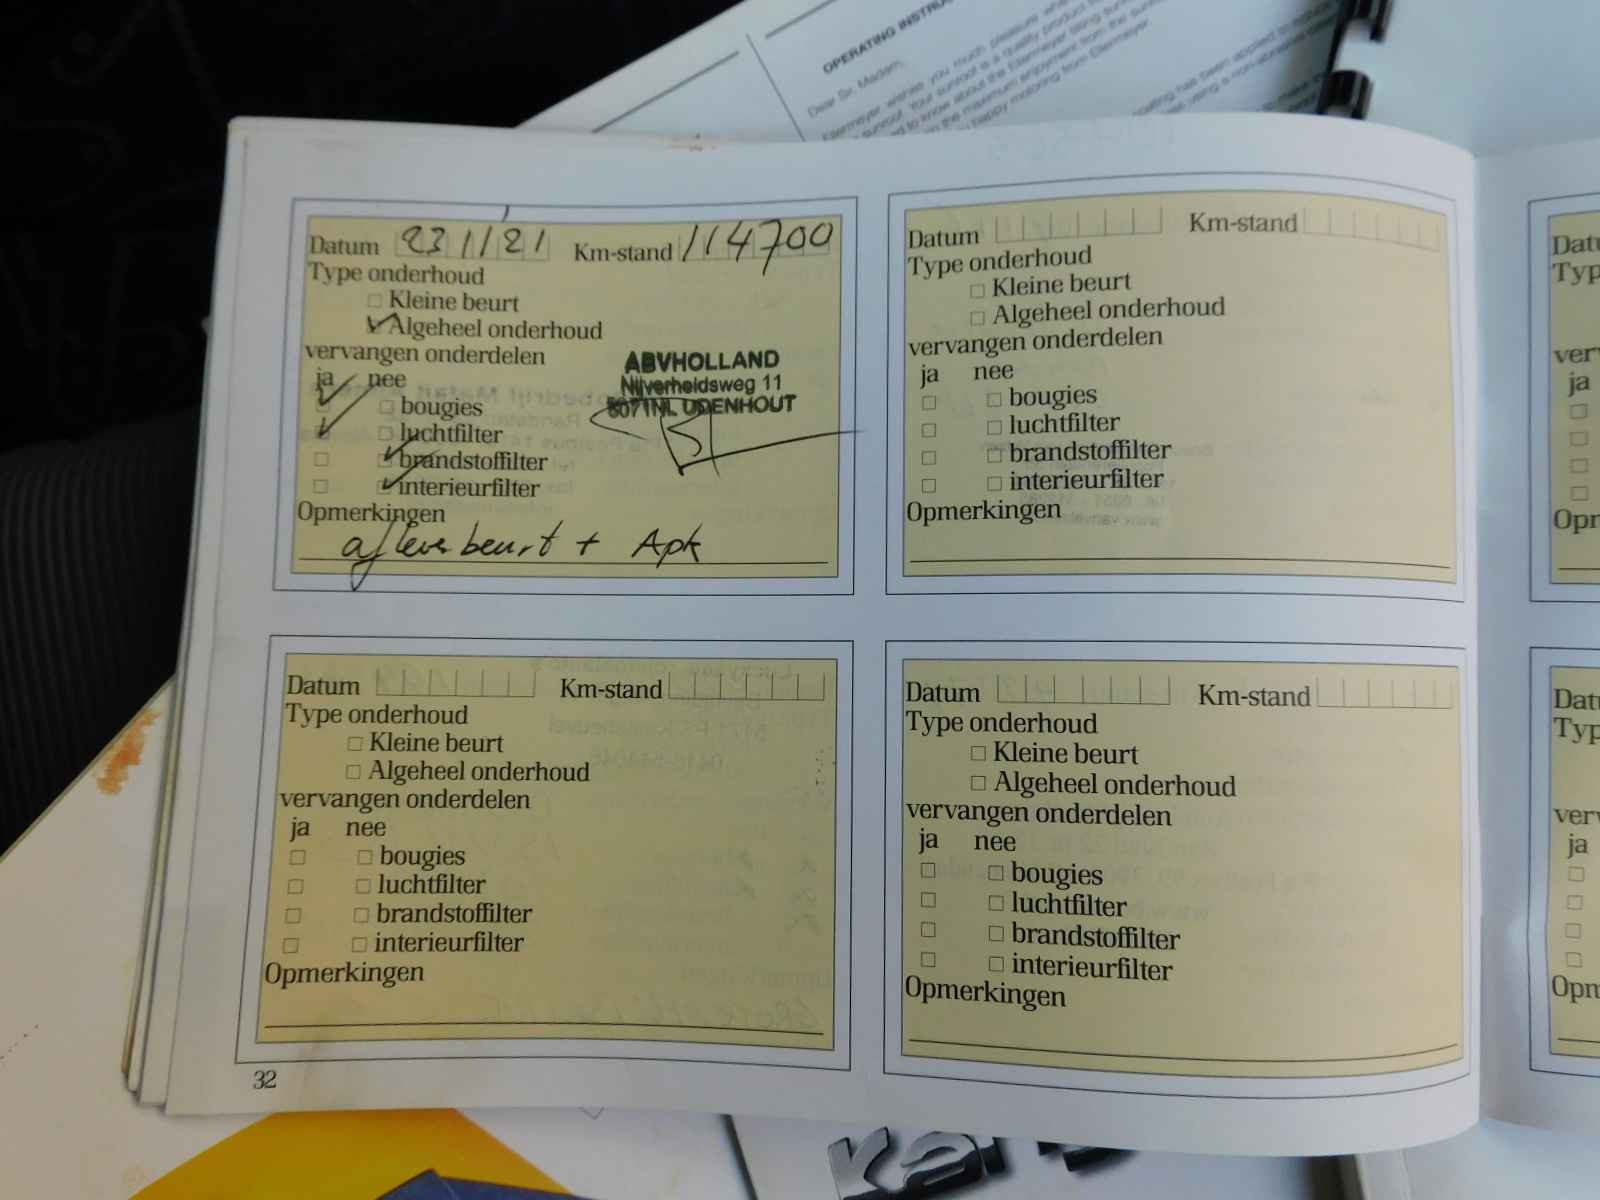 OPERATING INSTRUC
Dear Sir, Madam,
Datum 23 1/21 Km-stand 114700
Type onderhoud
Kleine beurt
Algeheel onderhoud
vervangen onderdelen
ja nee
bougies
luchtfilter
brandstoffilter
interieurfilter
Opmerkingen
afleverbeurt + Apk
ABVHOLLAND
Nijverheidsweg 11
5071NL UDENHOUT
Datum Km-stand
Type onderhoud
Kleine beurt
Algeheel onderhoud
vervangen onderdelen
ja nee
bougies
luchtfilter
brandstoffilter
interieurfilter
Opmerkingen
Datu
Typ
ver
ja
Opr
Datum Km-stand
Type onderhoud
Kleine beurt
Algeheel onderhoud
vervangen onderdelen
ja nee
bougies
luchtfilter
brandstoffilter
interieurfilter
Opmerkingen
Datum Km-stand
Type onderhoud
Kleine beurt
Algeheel onderhoud
vervangen onderdelen
ja nee
bougies
luchtfilter
brandstoffilter
interieurfilter
Opmerkingen
Datu
Typ
ver
ja
Opn
32